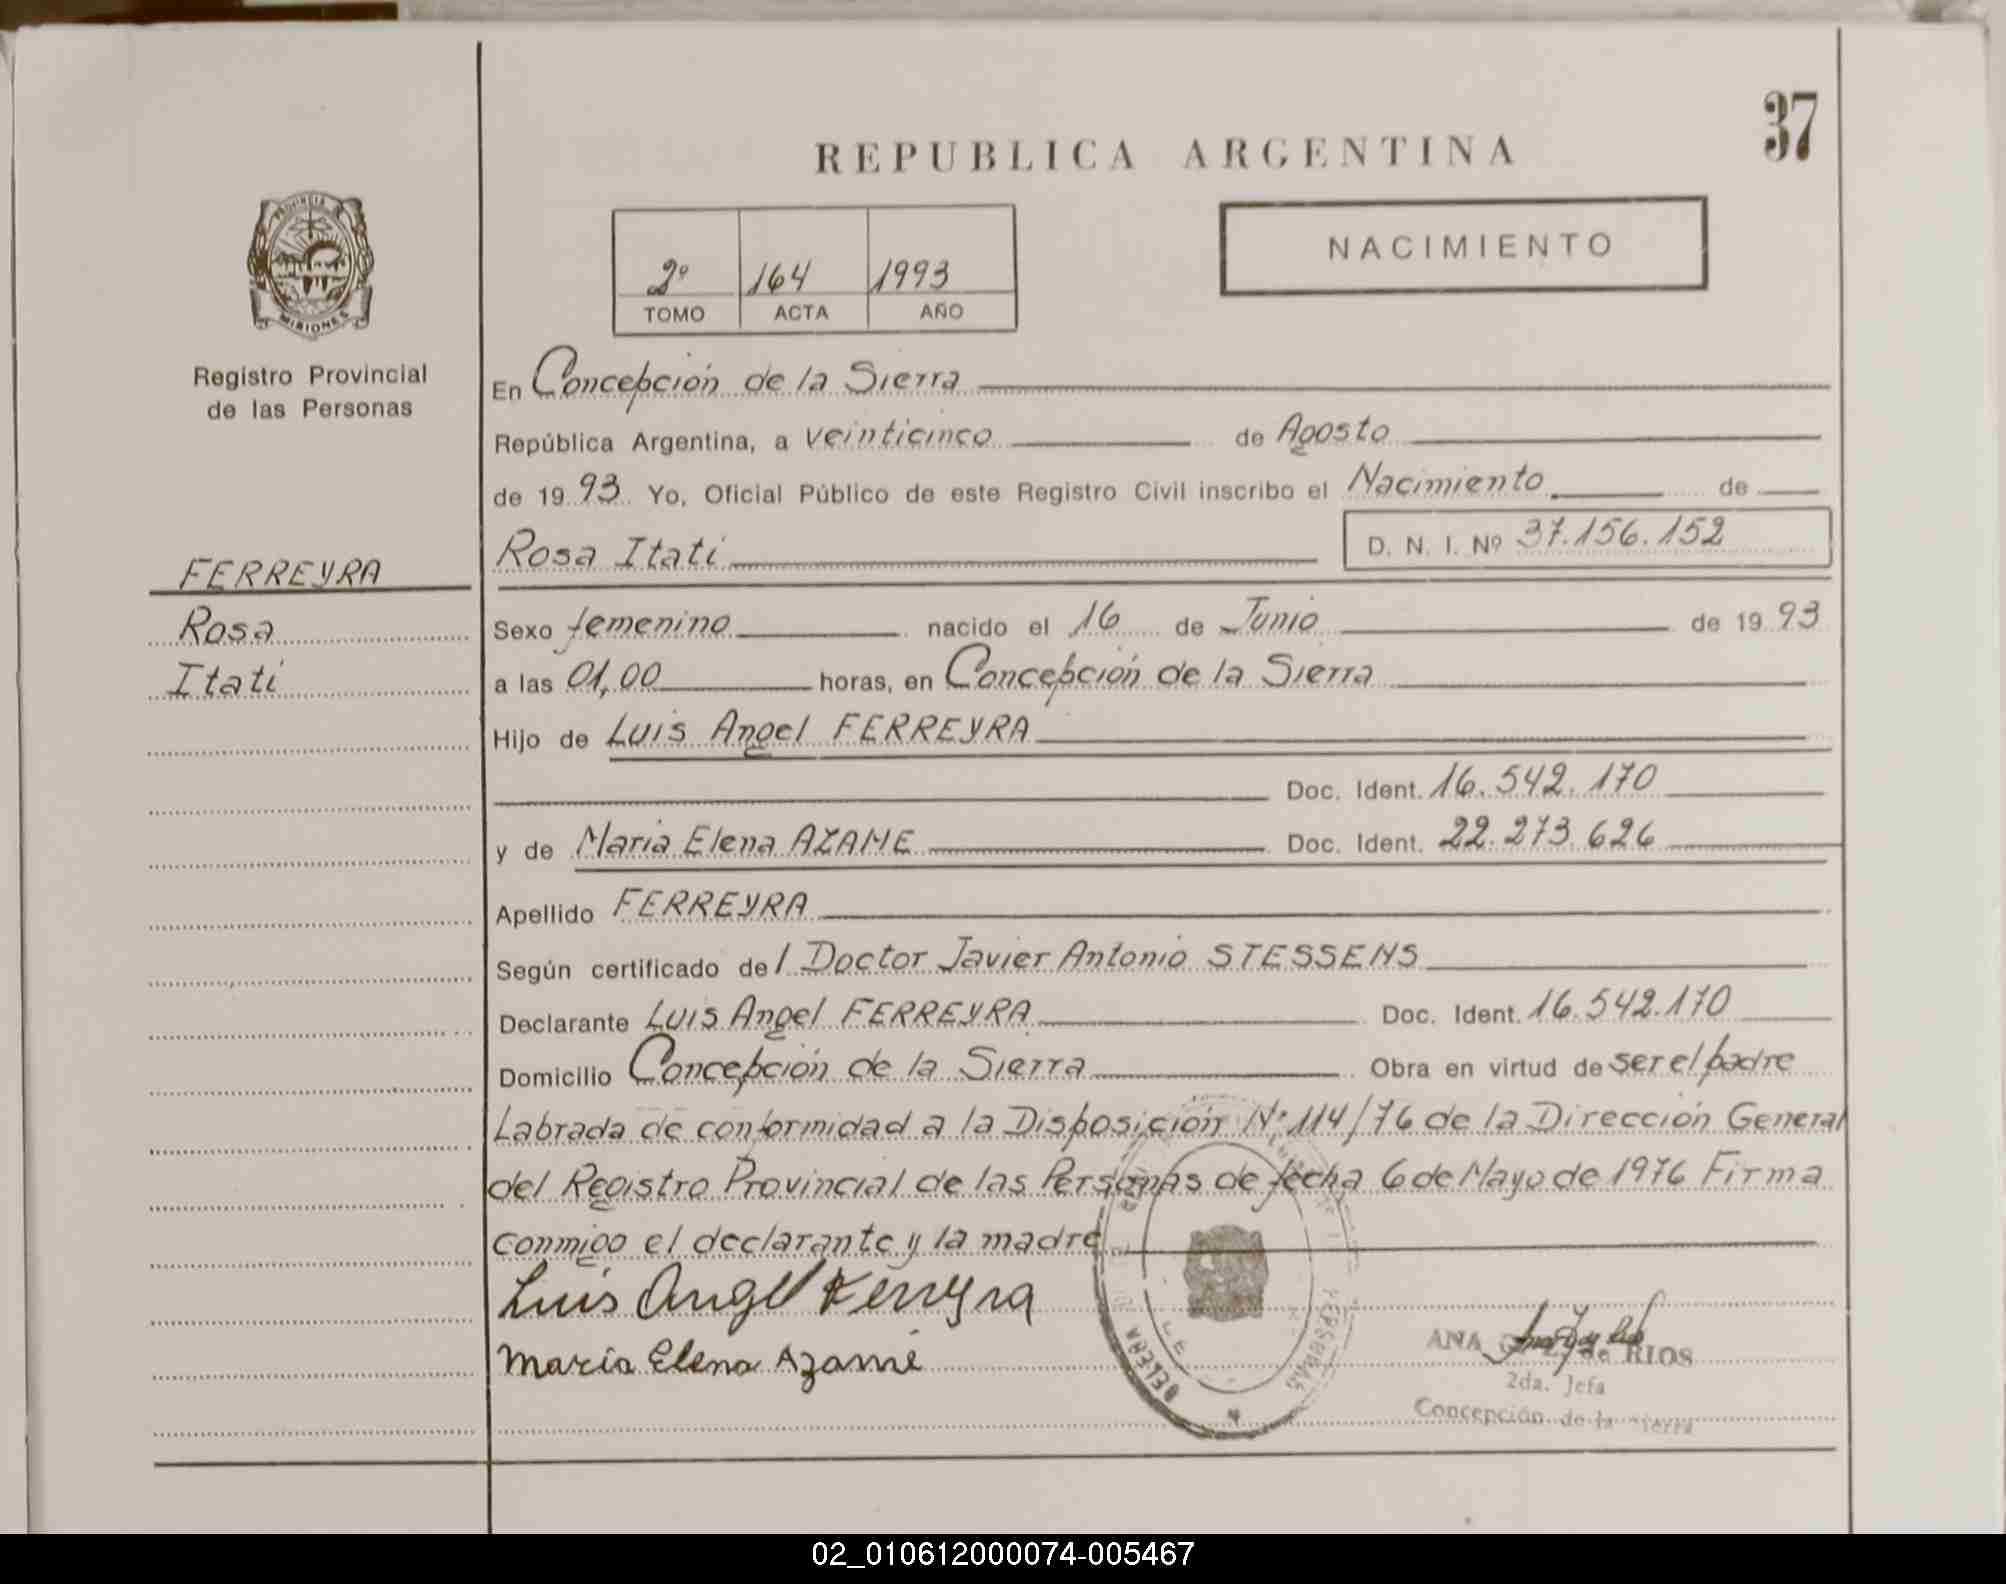 37
REPUBLICA ARGENTINA
PROVINCIA DE
MISIONES
Registro Provincial
de las Personas
2º 164 1993
TOMO ACTA AÑO
NACIMIENTO
En Concepción de la Sierra
República Argentina, a veinticinco de Agosto
de 19 93 Yo, Oficial Público de este Registro Civil inscribo el Nacimiento de
Rosa Itatí D. N. I. Nº 37.156.152
FERREYRA
Rosa
Itatí
Sexo femenino nacido el 16 de Junio de 19 93
a las 01,00 horas, en Concepción de la Sierra
Hijo de Luis Angel FERREYRA
Doc. Ident. 16.542.170
y de María Elena AZAME Doc. Ident. 22.273.626
Apellido FERREYRA
Según certificado del Doctor Javier Antonio STESSENS
Declarante Luis Angel FERREYRA Doc. Ident. 16.542.170
Domicilio Concepción de la Sierra Obra en virtud de ser el padre
Labrada de conformidad a la Disposición Nº 114/76 de la Dirección General
del Registro Provincial de las Personas de fecha 6 de Mayo de 1976 Firma
conmigo el declarante y la madre
Luis Angel Ferreyra
María Elena Azamé
ANA de RIOS
2da. Jefa
Concepción de la Sierra
02_010612000074-005467